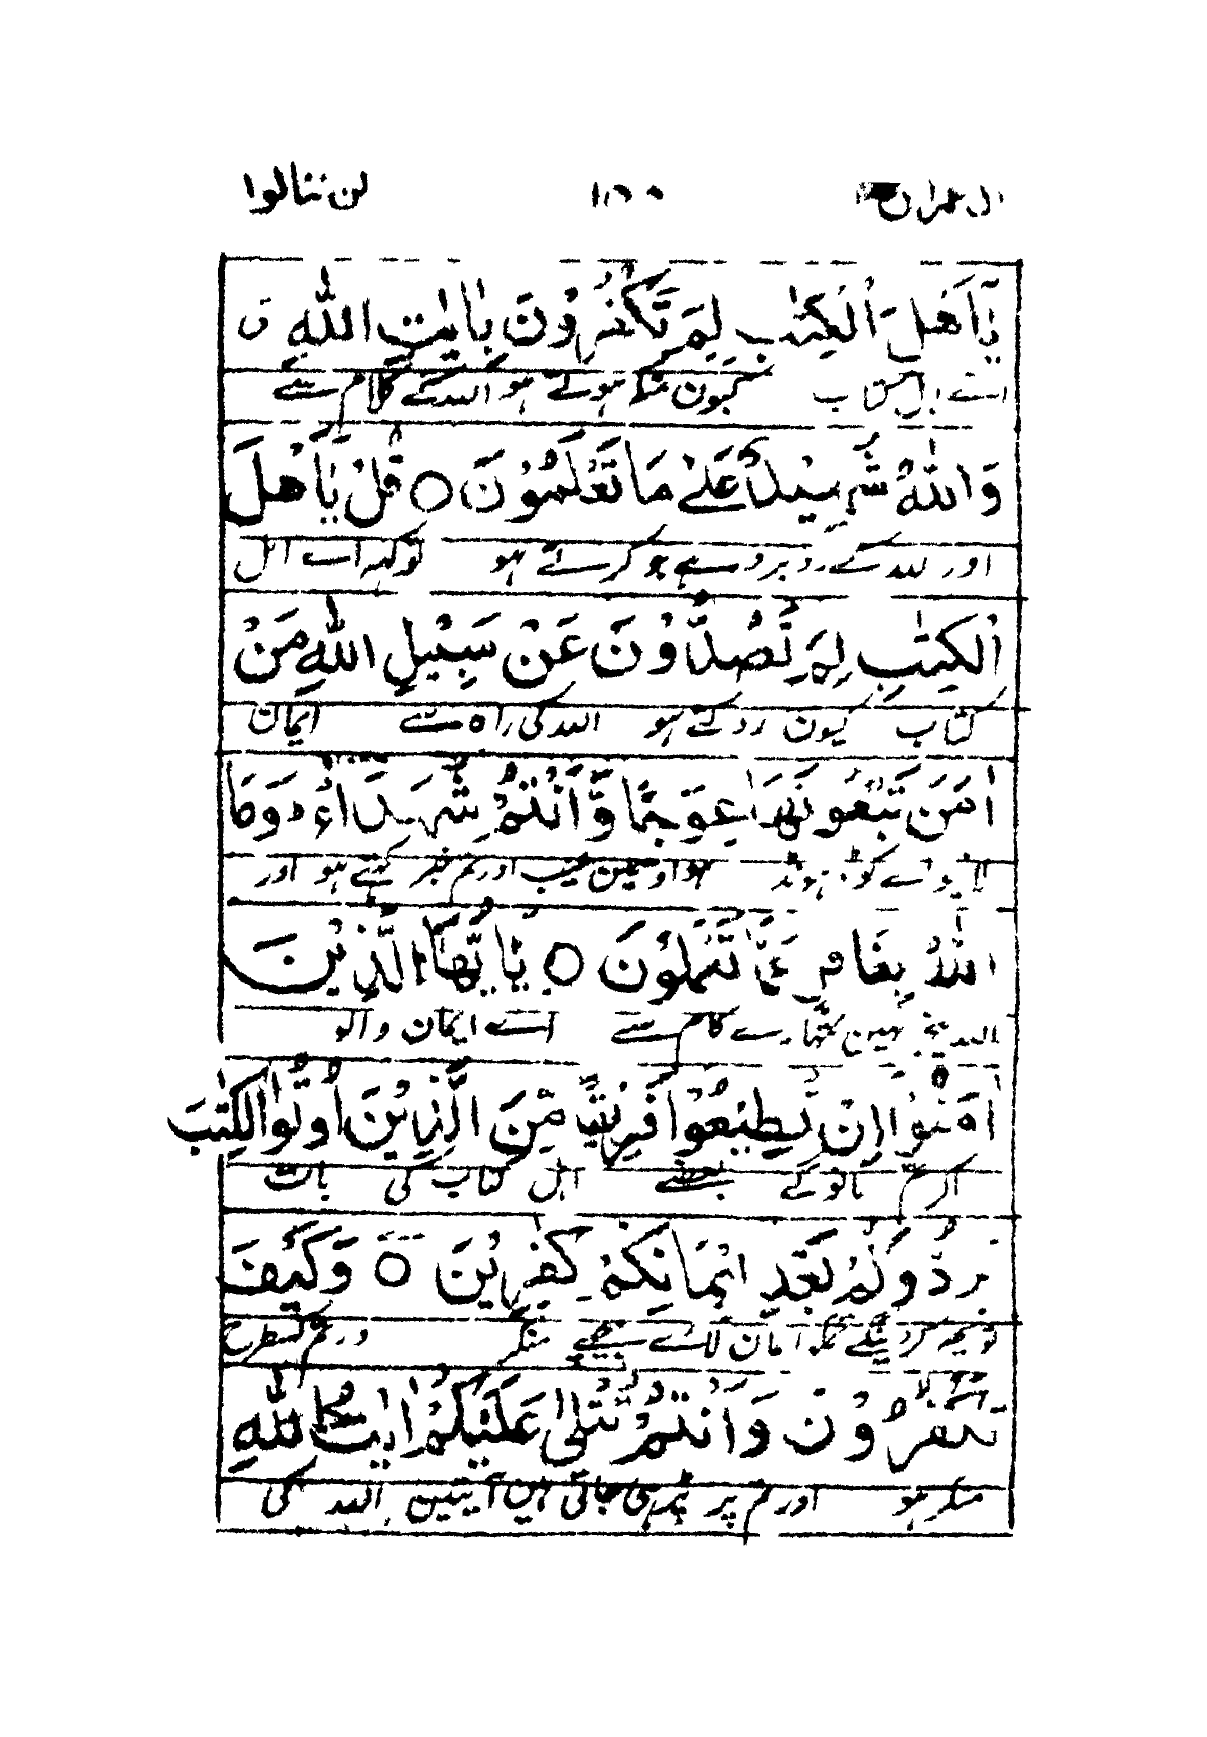 ال عمران لن تنالوا
يٰٓاَهْلَ الْكِتٰبِ لِمَ تَكْفُرُوْنَ بِاٰيٰتِ اللّٰهِ ق
اے اہل کتاب کیون منکر ہوتے ہو اللہ کے کلام سے
وَاللّٰهُ شَهِيْدٌ عَلٰى مَا تَعْمَلُوْنَ ○ قُلْ يٰٓاَهْلَ
اور اللہ کے روبرو ہے جو کرتے ہو تو کہہ اے اہل
الْكِتٰبِ لِمَ تَصُدُّوْنَ عَنْ سَبِيْلِ اللّٰهِ مَنْ
کتاب کیون روکتے ہو اللہ کی راہ سے ایمان
اٰمَنَ تَبْغُوْنَهَا عِوَجًا وَّاَنْتُمْ شُهَدَآءُ ؕ وَمَا
ہو اوسمین عیب اور تم خبر رکھتے ہو اور
اللّٰهُ بِغَافِلٍ عَمَّا تَعْمَلُوْنَ ○ يٰٓاَيُّهَا الَّذِيْنَ
اللہ بیخبر نہین تمہارے کام سے اے ایمان والو
اٰمَنُوْٓا اِنْ تُطِيْعُوْا فَرِيْقًا مِّنَ الَّذِيْنَ اُوْتُوا الْكِتٰبَ
اگر تم مانو گے بعضے اہل کتاب کی بات
يَرُدُّوْكُمْ بَعْدَ اِيْمَانِكُمْ كٰفِرِيْنَ ○ وَكَيْفَ
تو پھر کر دینگے تمکو ایمان لائے پیچھے منکر اور تم کسطرح
تَكْفُرُوْنَ وَاَنْتُمْ تُتْلٰى عَلَيْكُمْ اٰيٰتُ اللّٰهِ
منکر ہو اور تم پر پڑھی جاتی ہین آیتین اللہ کی